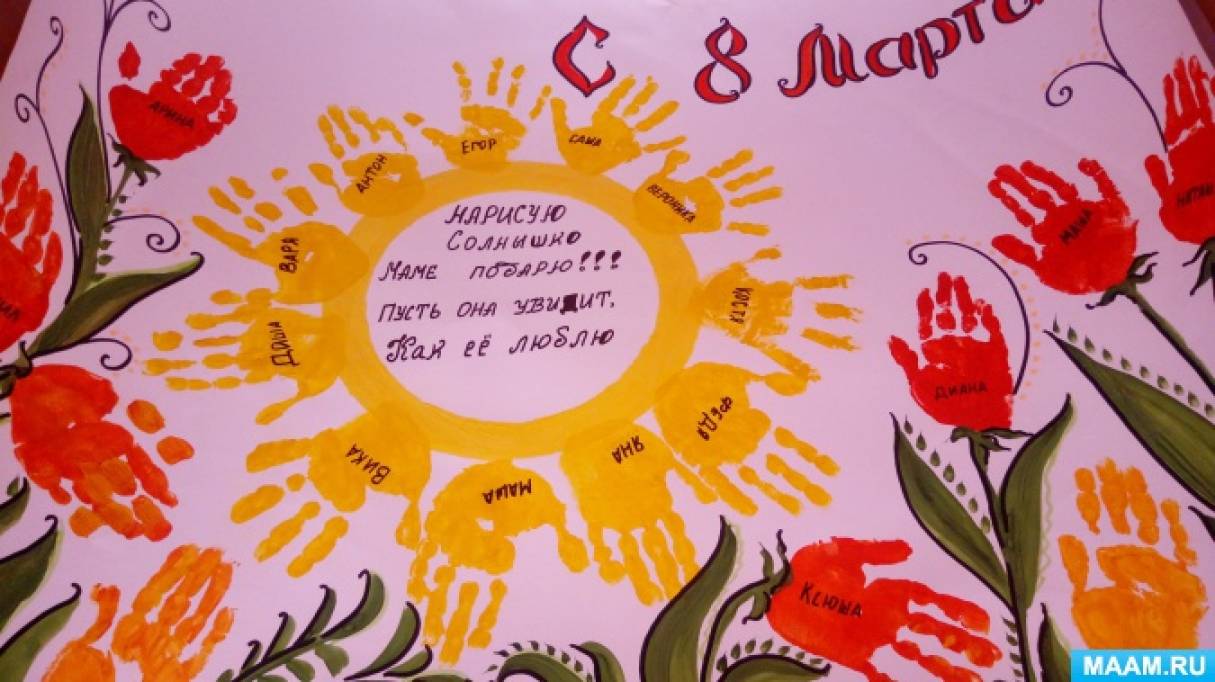 С 8 Марта
АРИНА
ЕГОР
САША
АНТОН
ВЕРОНИКА
ВАРЯ
НАРИСУЮ
Солнышко
Маме подарю!!!
Пусть она увидит,
Как её люблю
КОСТЯ
ДАША
МАША
ДИАНА
ФЕДЯ
ЯНА
ВИКА
МАША
КСЮША
MAAM.RU